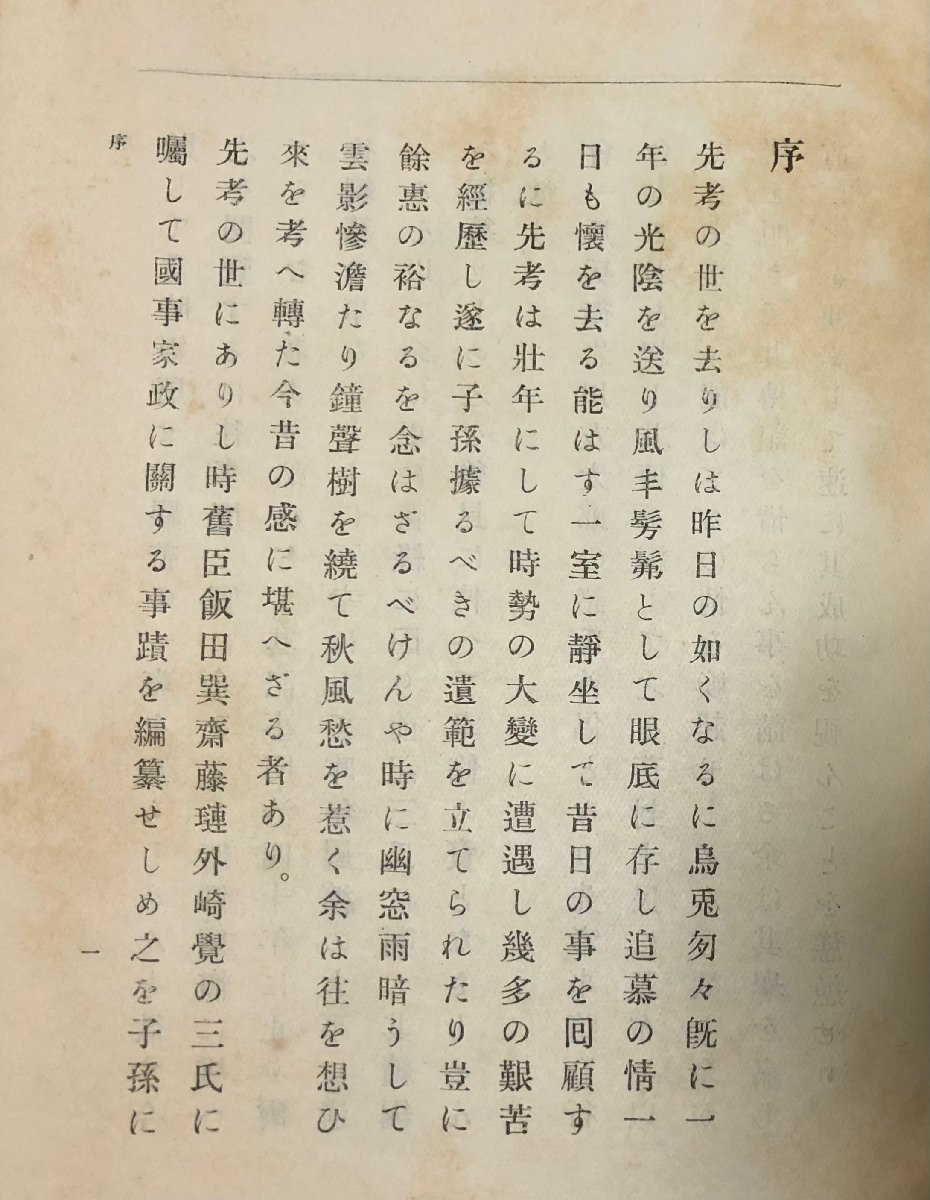 序
先考の世を去りしは昨日の如くなるに烏兎匆々既に一
年の光陰を送り風丰髣髴として眼底に存し追慕の情一
日も懷を去る能はす一室に靜坐して昔日の事を囘顧す
るに先考は壯年にして時勢の大變に遭遇し幾多の艱苦
を經歷し遂に子孫據るべきの遺範を立てられたり豈に
餘惠の裕なるを念はざるべけんや時に幽窓雨暗うして
雲影慘澹たり鐘聲樹を繞て秋風愁を惹く余は往を想ひ
來を考へ轉た今昔の感に堪へざる者あり。
先考の世にありし時舊臣飯田巽齋藤璉外崎覺の三氏に
囑して國事家政に關する事蹟を編纂せしめ之を子孫に
序
一